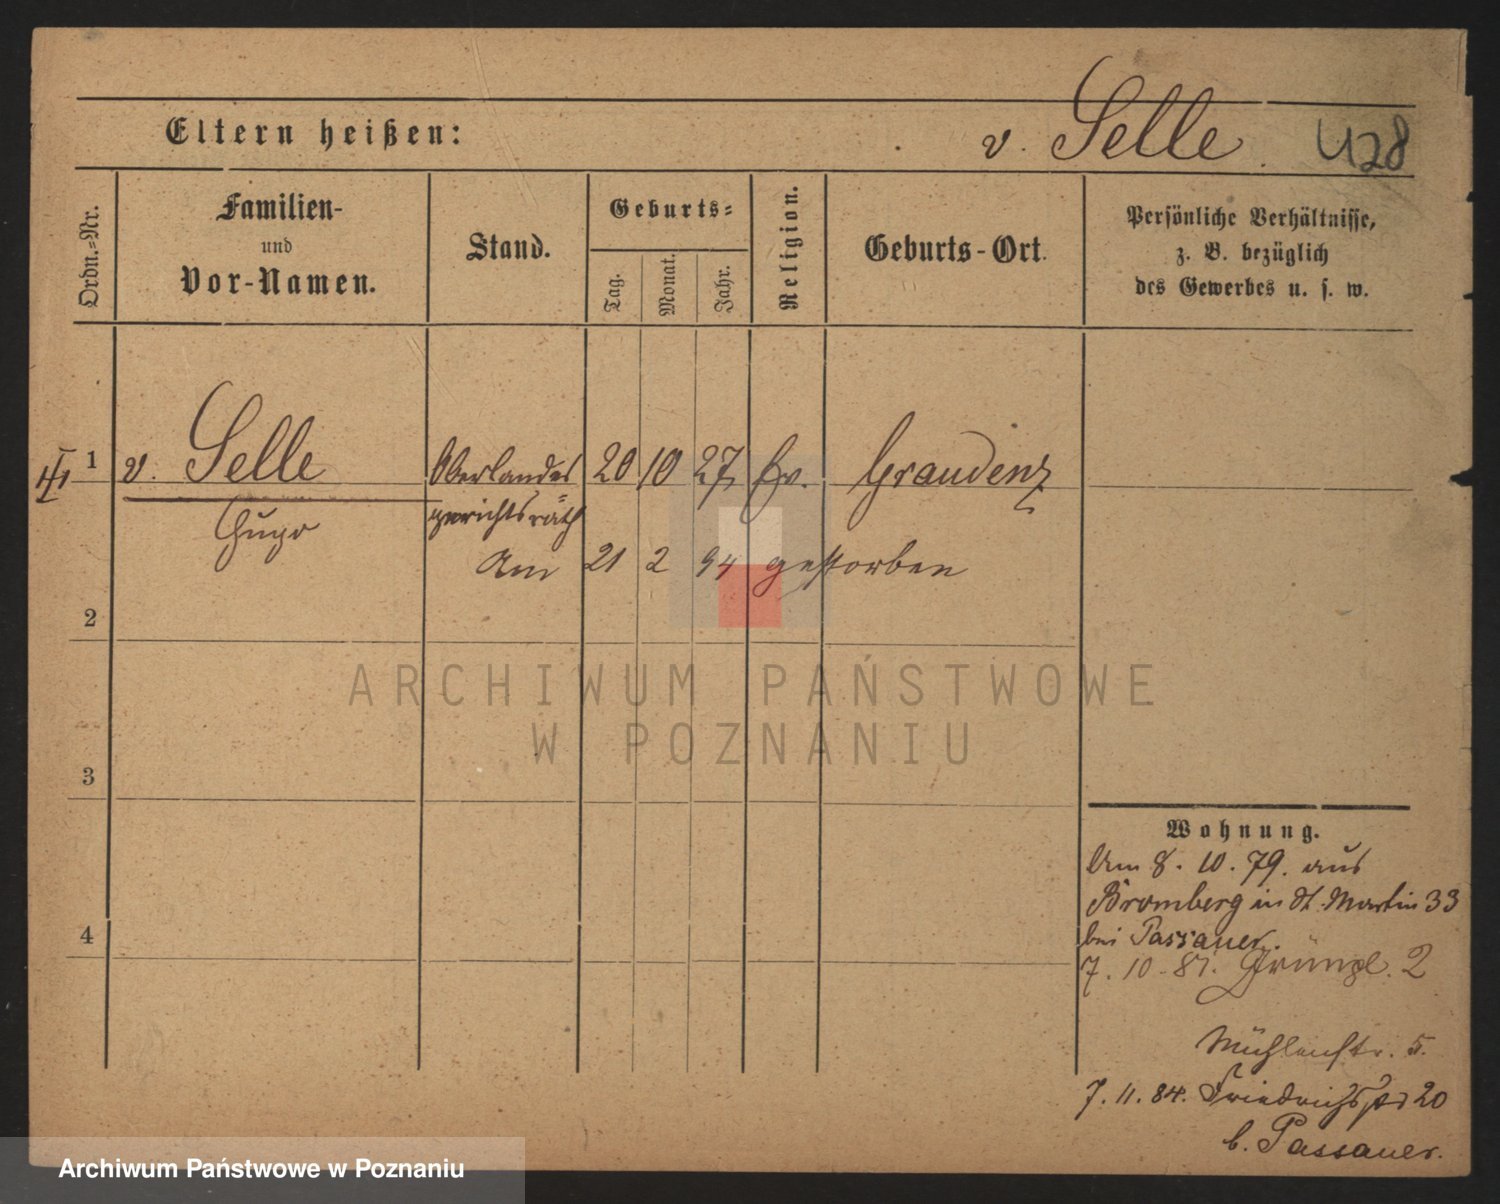 Eltern heißen:
v. Selle.
428
Ordn.=Nr.
Familien-
und
Vor-Namen.
Stand.
Geburts=
Tag.
Monat.
Jahr.
Religion.
Geburts-Ort.
Persönliche Verhältnisse,
z. B. bezüglich
des Gewerbes u. s. w.
1 v. Selle Oberlandes 20 10 27 Ev. Graudenz
Hugo gerichtsrath
Am 21 2 94 gestorben
2
3
4
ARCHIWUM PAŃSTWOWE
W POZNANIU
Wohnung.
Am 8. 10. 79. aus
Bromberg in St. Martin 33
bei Passauer.
7. 10. 81. Grünpl. 2
Mühlenstr. 5.
7. 11. 84. Friedrichstr 20
b. Passauer.
Archiwum Państwowe w Poznaniu